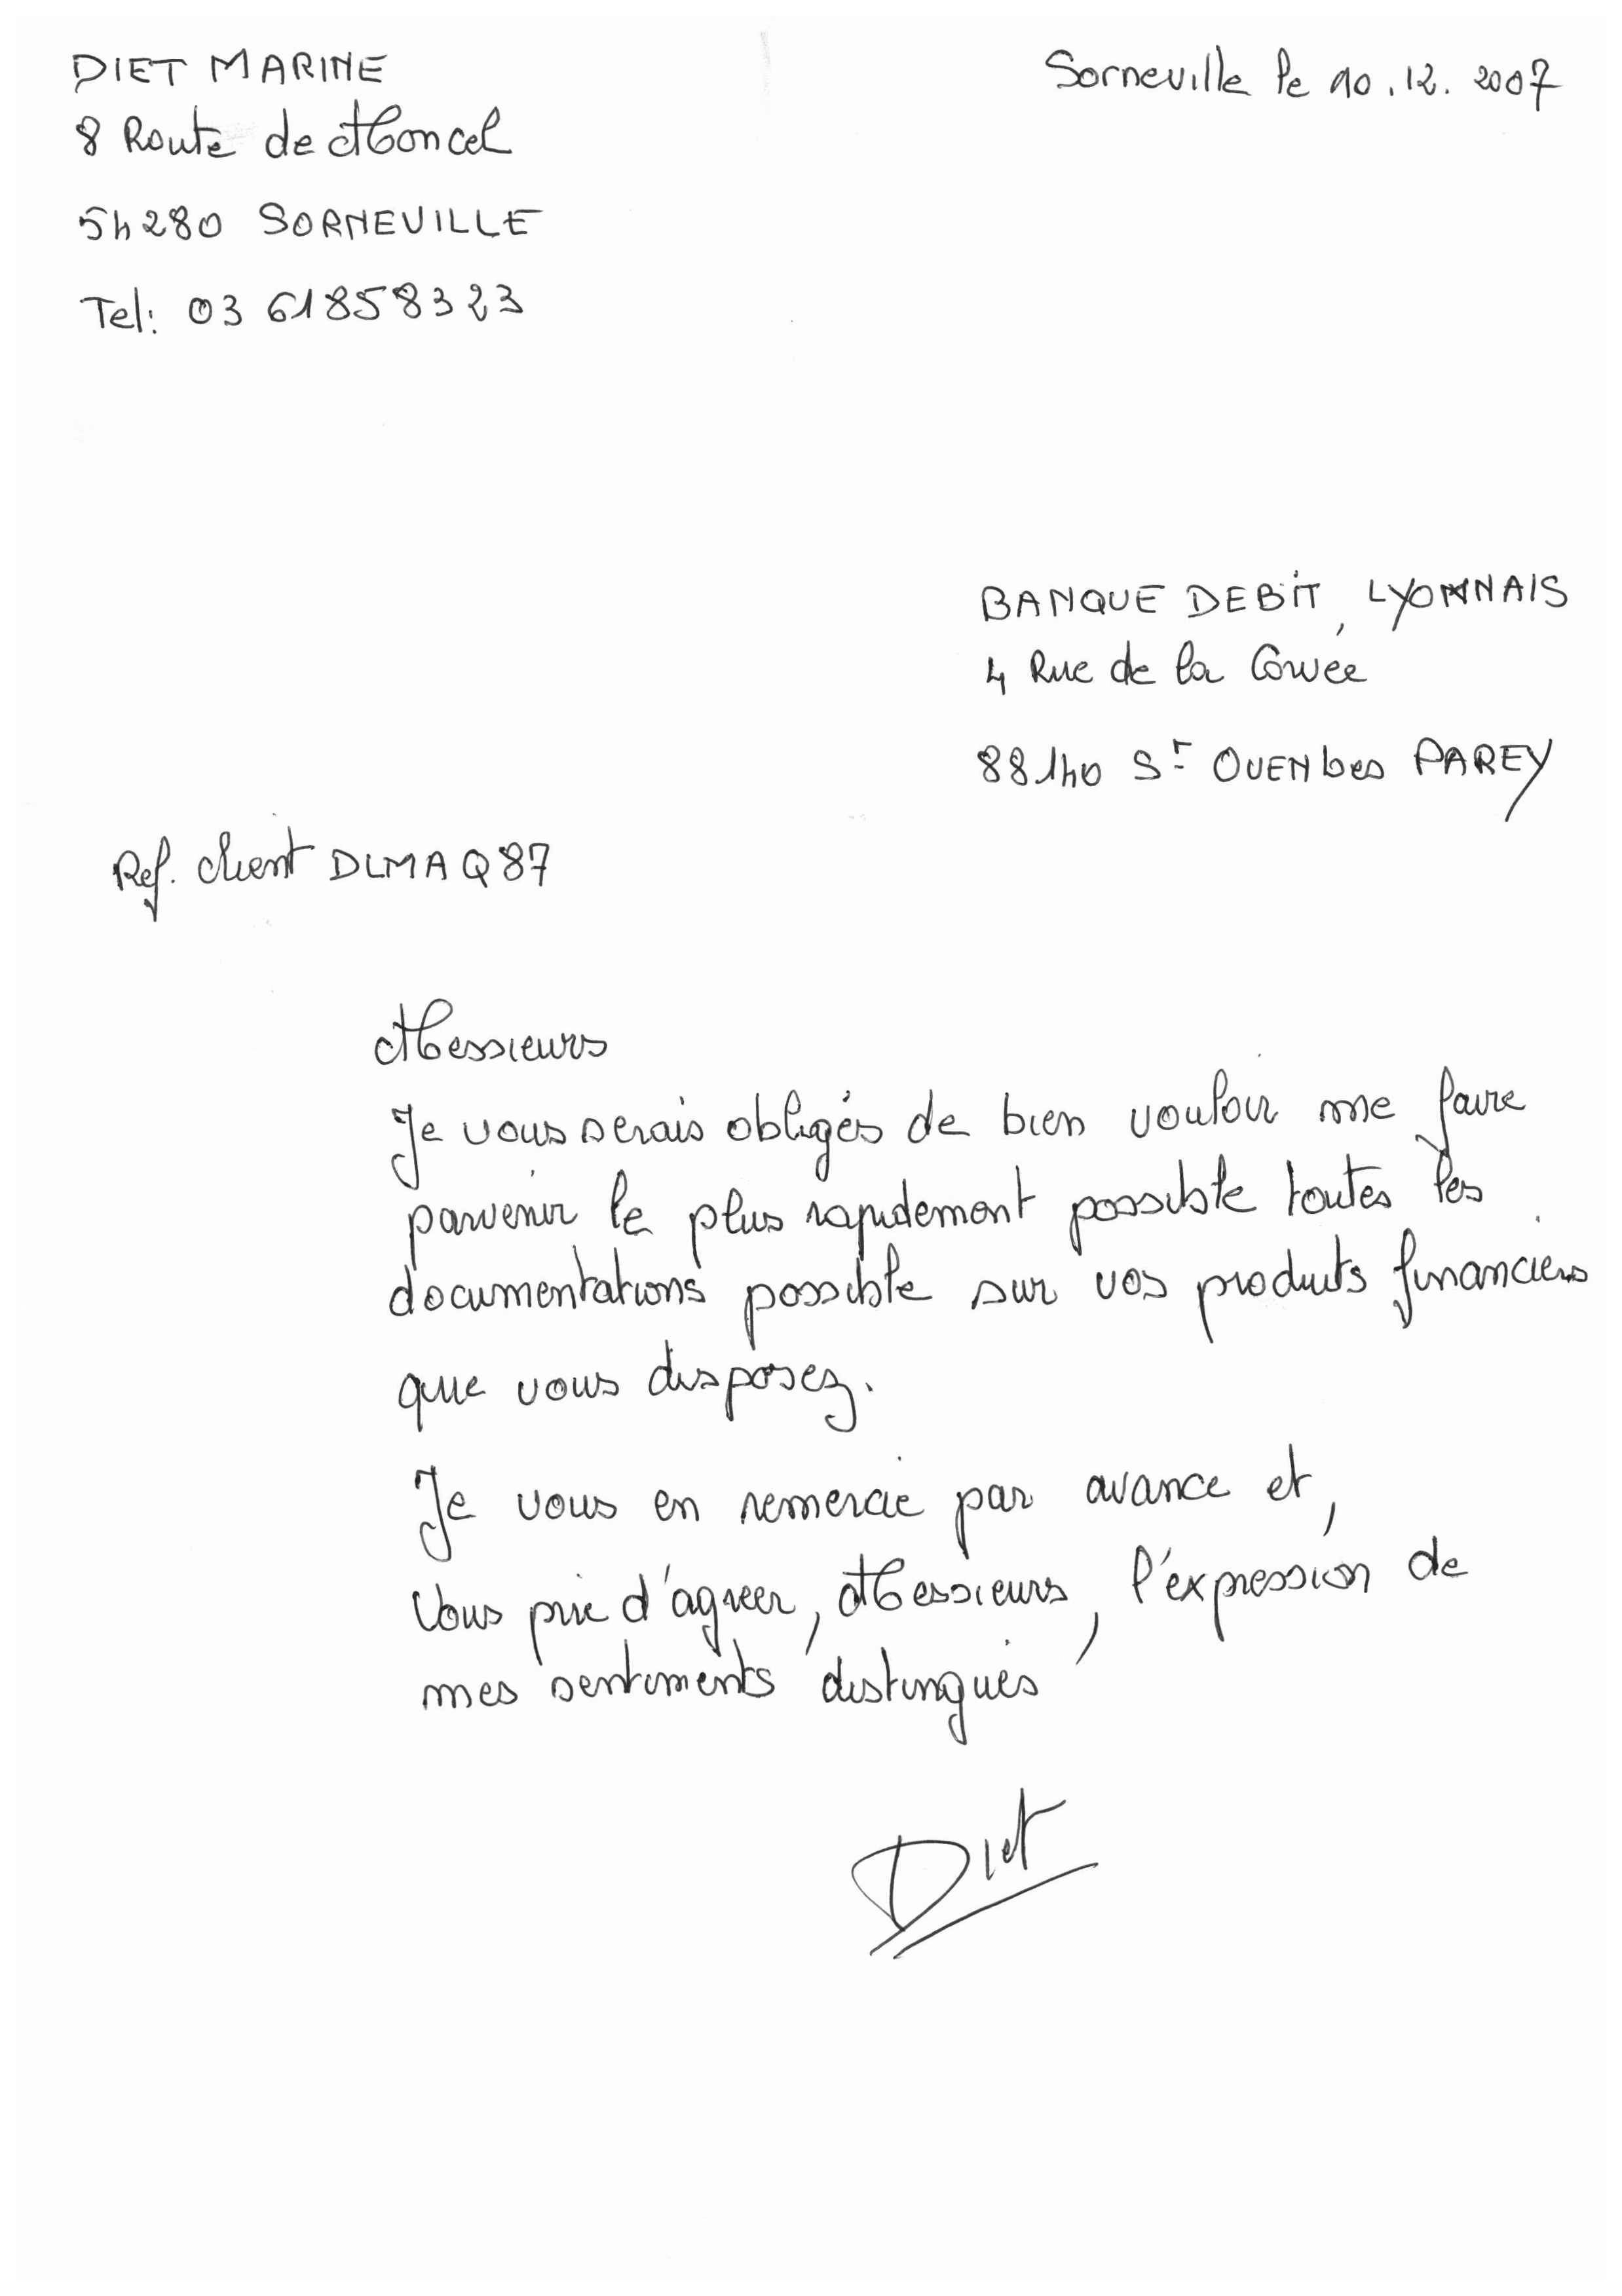 DIET MARINE
Sorneville le 10.12.2007
8 Route de Moncel
54280 SORNEVILLE
Tel: 03 61858323
BANQUE DEBIT LYONNAIS
4 Rue de la Corvée
88140 St OUEN les PAREY
Ref. client DLMAQ87
Messieurs
Je vous serais obligés de bien vouloir me faire
parvenir le plus rapidement possible toutes les
documentations possible sur vos produits financiers
que vous disposez.
Je vous en remercie par avance et,
Vous prie d'agreer, Messieurs, l'expression de
mes sentiments distingués
Diet